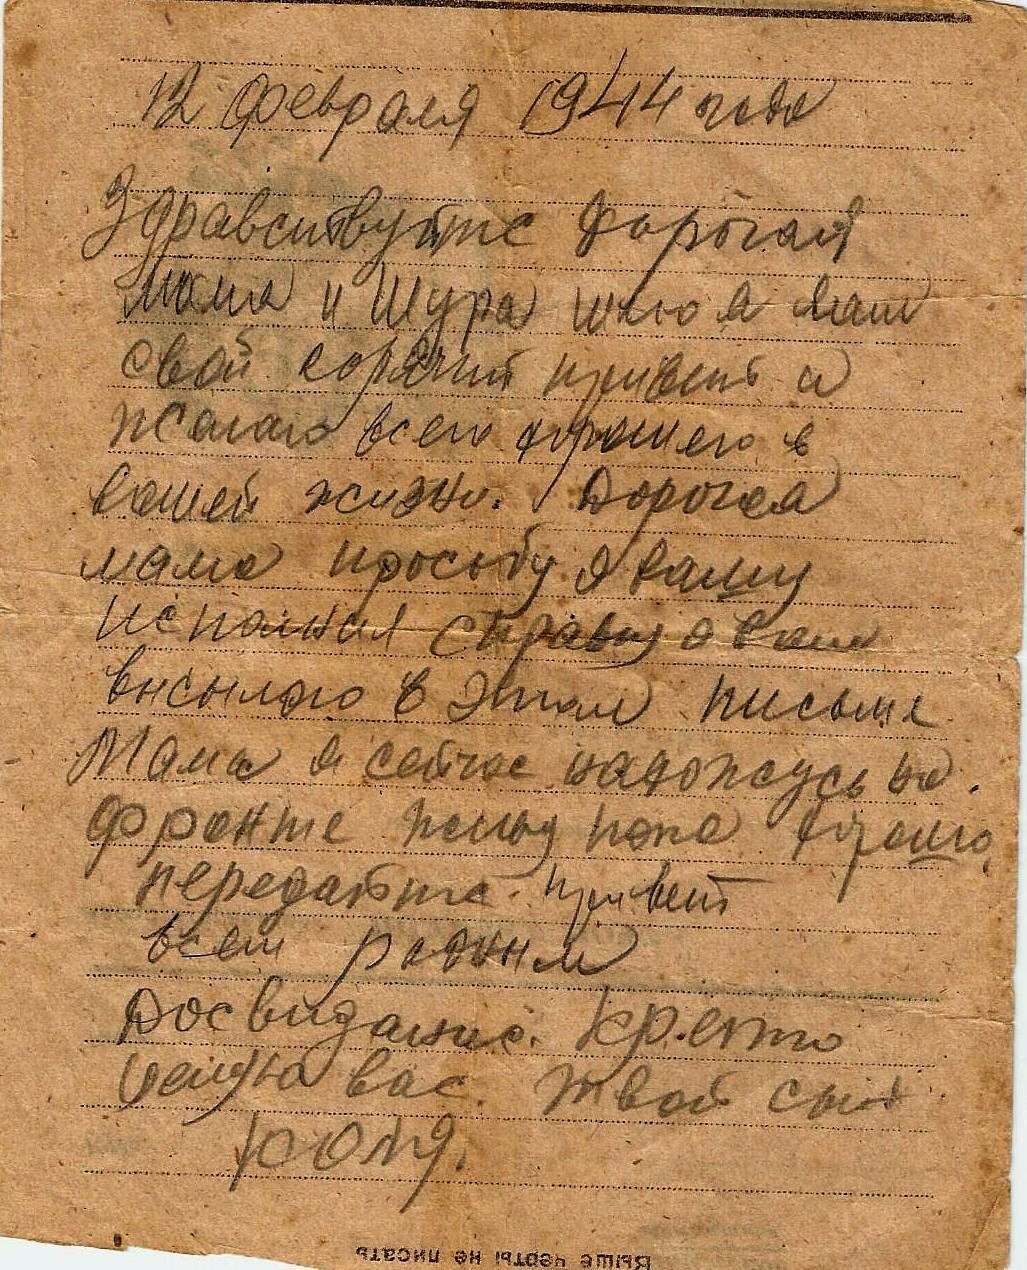 12 февраля 1944 года
Здравствуйте дорогая
мама и Шура шлю я вам
свой горячий привет и
желаю всего хорошего в
вашей жизни. Дорогая
мама просьбу я вашу
исполнил справку я вам
высылаю в этом письме
Мама я сейчас нахожусь на
фронте живу пока хорошо,
передайте привет
всем родным
Досвидание. Крепко
целую вас. Твой сын
Коля.
Выше черты не писать